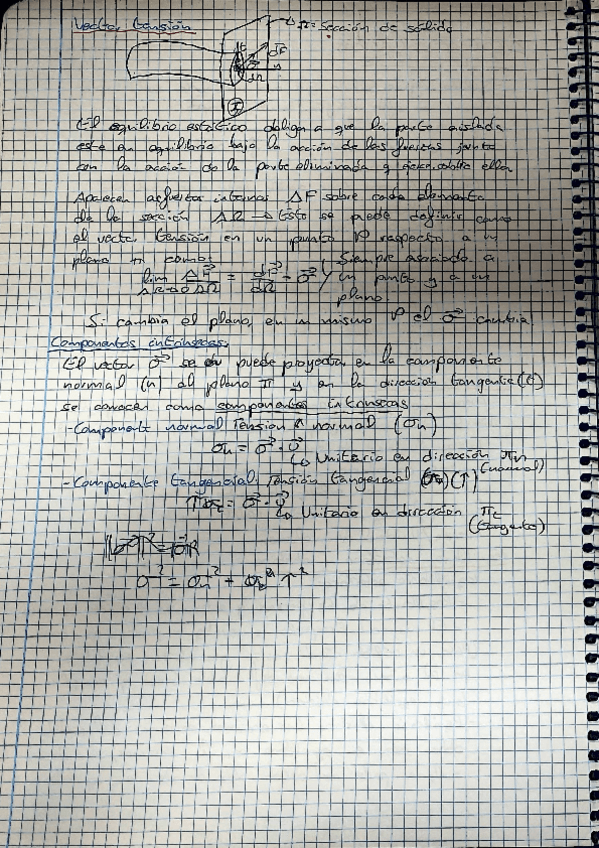 Vector tensión
π = Sección de sólido
dF
n
El equilibrio estático obliga a que la parte aislada
esté en equilibrio bajo la acción de las fuerzas junto
con la acción de la parte eliminada y ejerce sobre ella
Aparecen esfuerzos internos ΔF sobre cada elemento
de la sección ΔΩ → Esto se puede definir como
el vector tensión en un punto P respecto a un
plano π como:
lim ΔF/ΔΩ = dF/dΩ = σ⃗
ΔΩ→0
Siempre asociado a
un punto y a un
plano.
Si cambia el plano, en un mismo P el σ⃗ cambia
Componentes intrínsecas.
El vector σ⃗ se puede proyectar en la componente
normal (n) al plano π y en la dirección tangente (t)
se conocen como componentes intrínsecas
- Component normal Tensión normal (σn)
σn = σ⃗ · υ⃗
↳ Unitario en dirección πn
(normal)
- Componente tangencial: Tensión tangencial (τ)
= σ⃗ · υ⃗
↳ Unitario en dirección πt
(tangente)
σ² = σn² + τ²